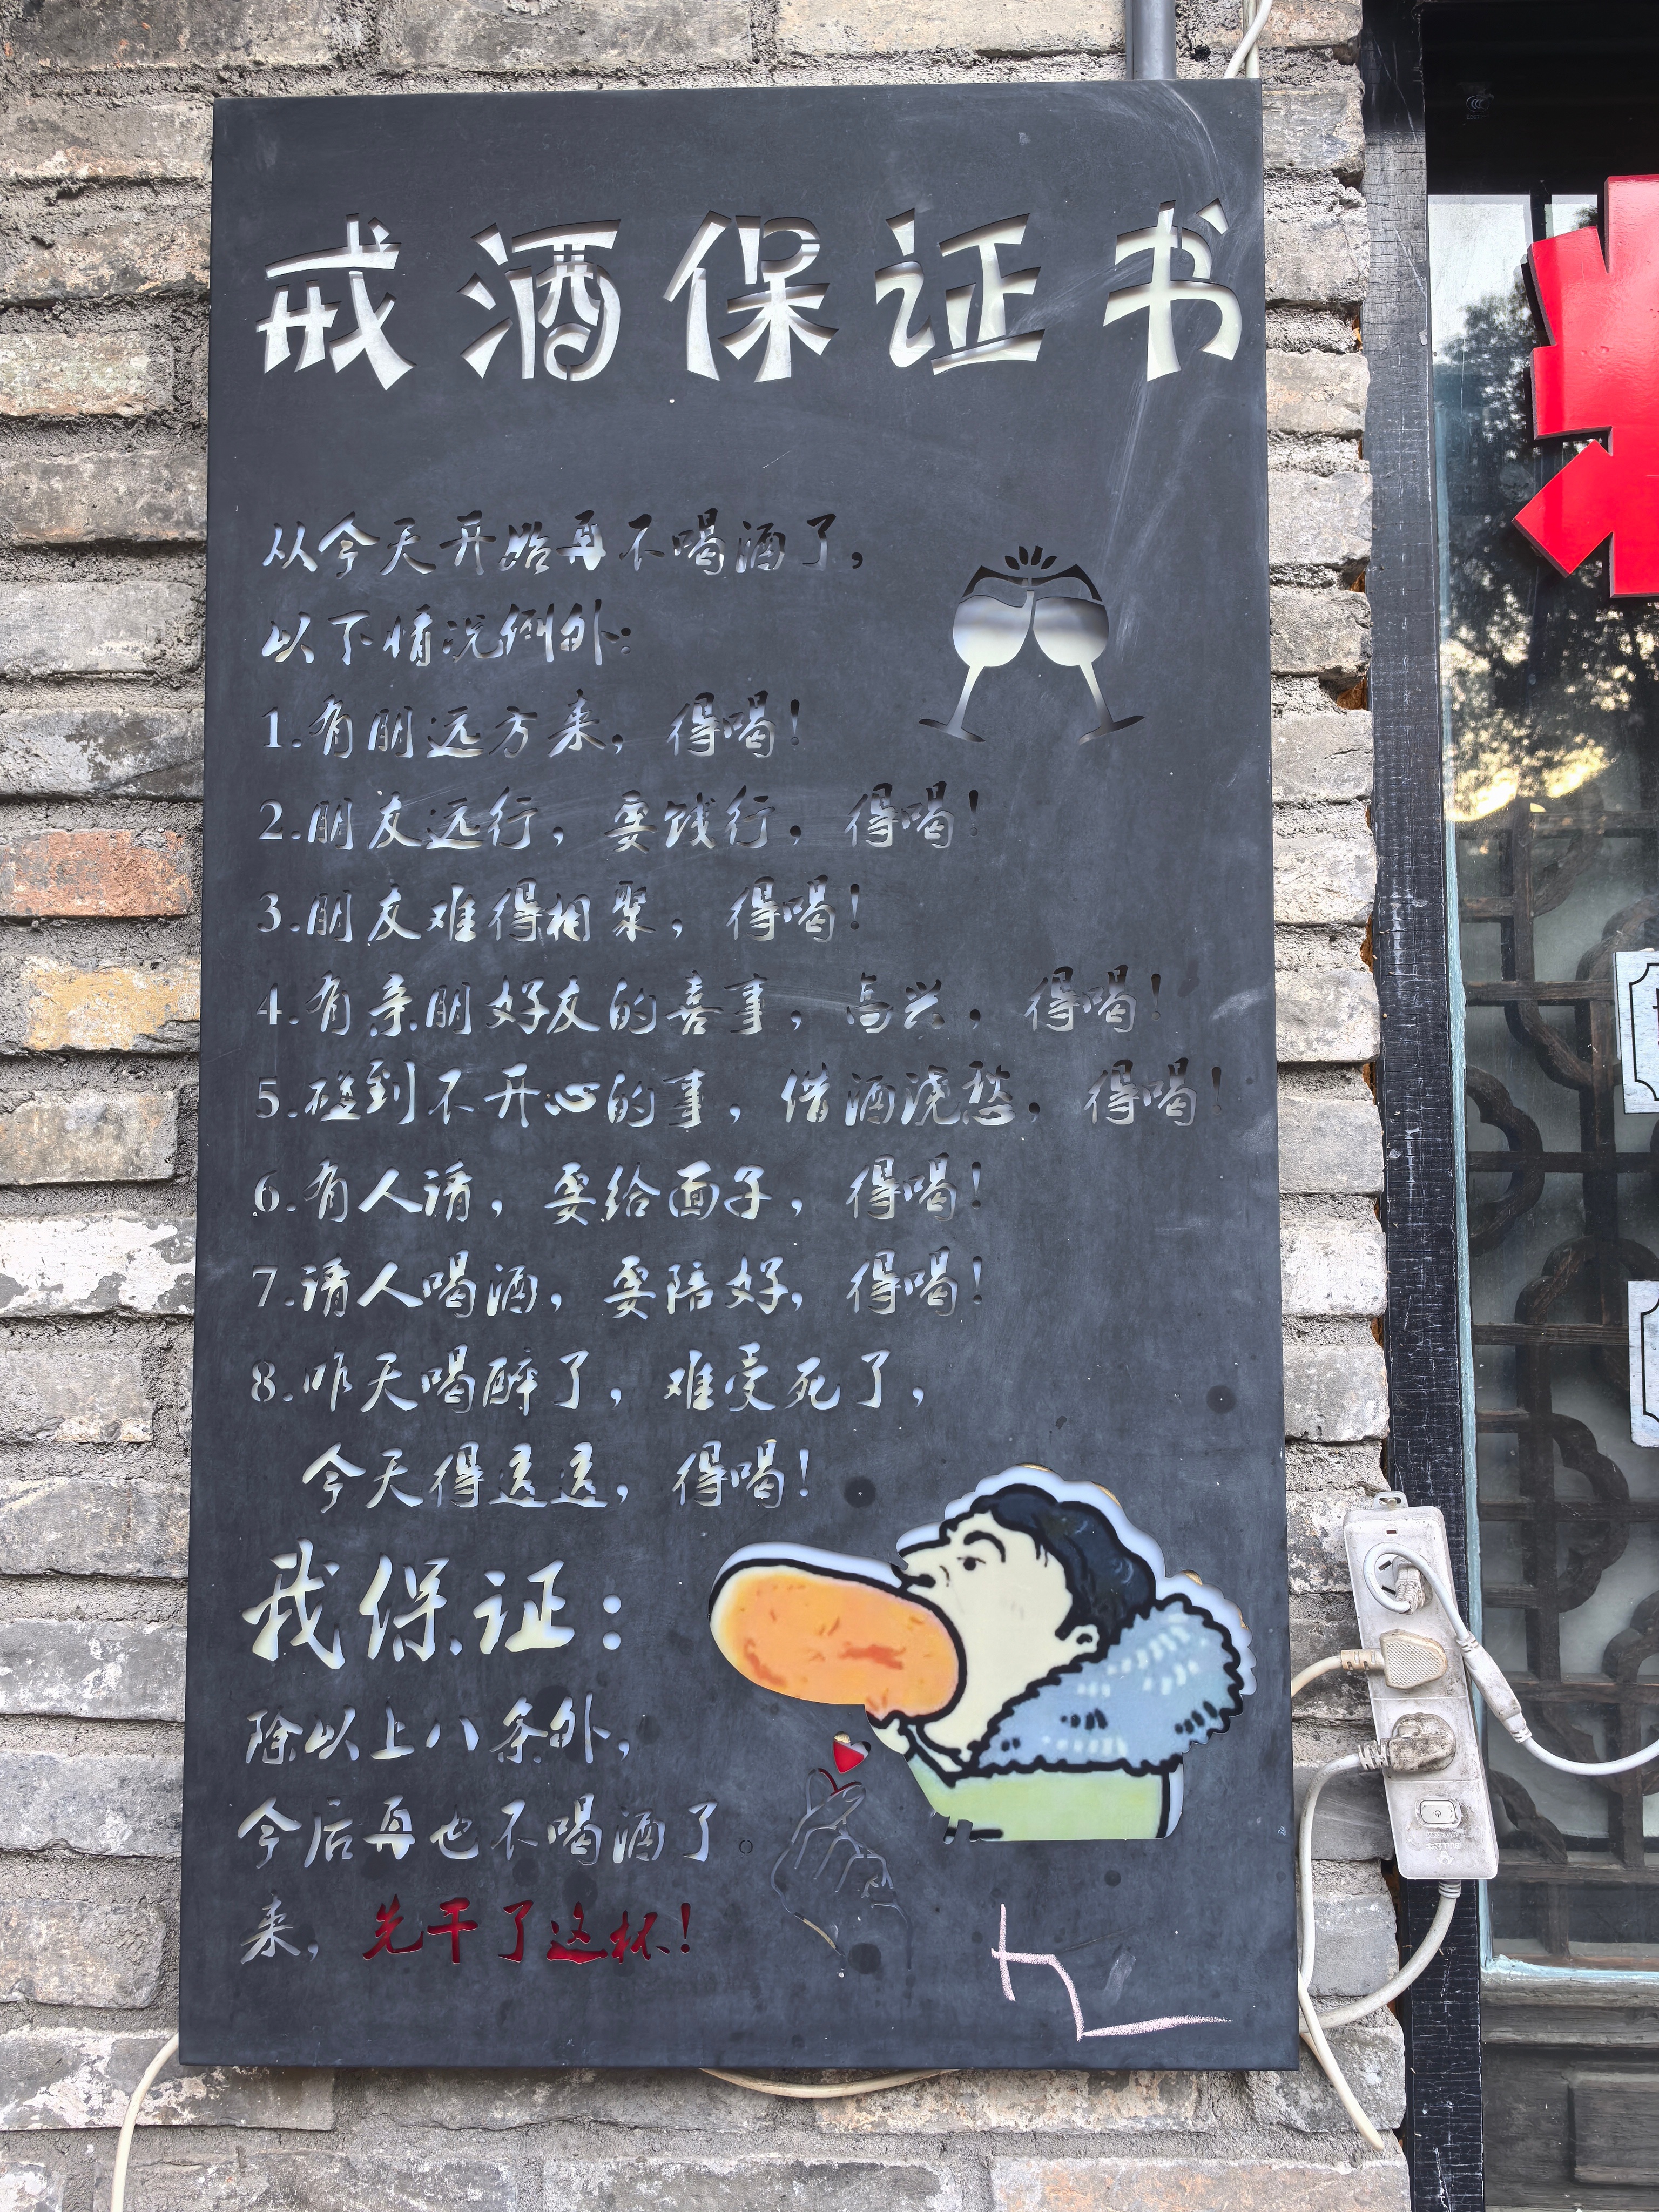 戒酒保证书
从今天开始再不喝酒了,
以下情况例外:
1.有朋远方来,得喝!
2.朋友远行,要饯行,得喝!
3.朋友难得相聚,得喝!
4.有亲朋好友的喜事,高兴,得喝!
5.碰到不开心的事,借酒浇愁,得喝!
6.有人请,要给面子,得喝!
7.请人喝酒,要陪好,得喝!
8.昨天喝醉了,难受死了,
今天得透透,得喝!
我保证:
除以上八条外,
今后再也不喝酒了
来,先干了这杯!